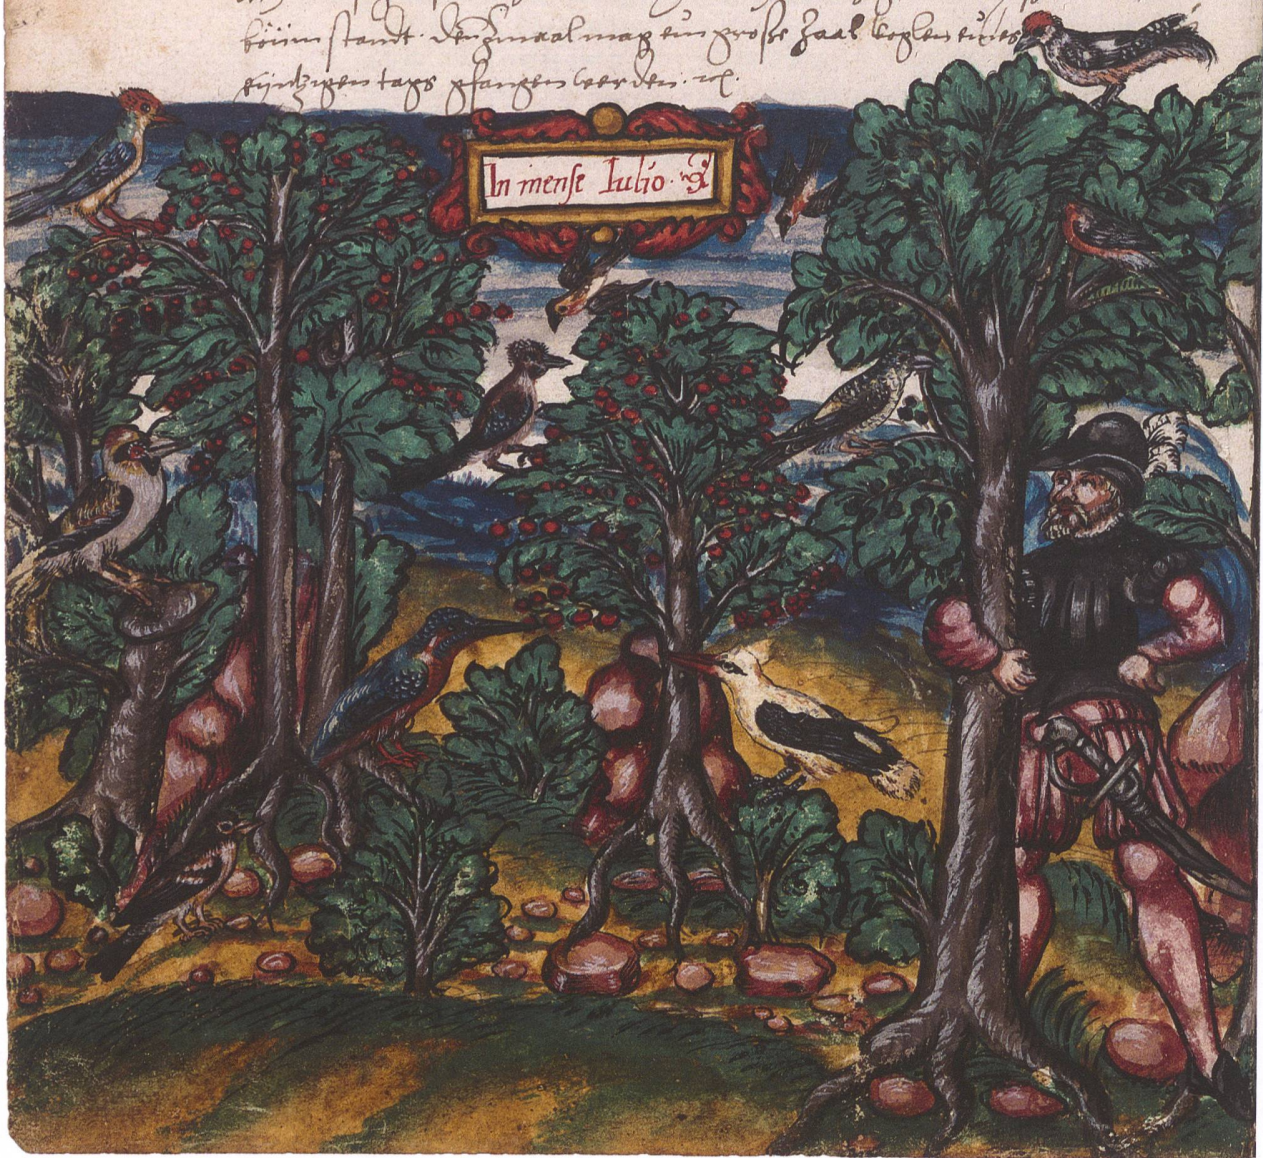 beüm standt. den zmaal mag ein große Zaal Voglen eines
eintzigen tags gfangen werden. ꝛc.
In mense Iulio.